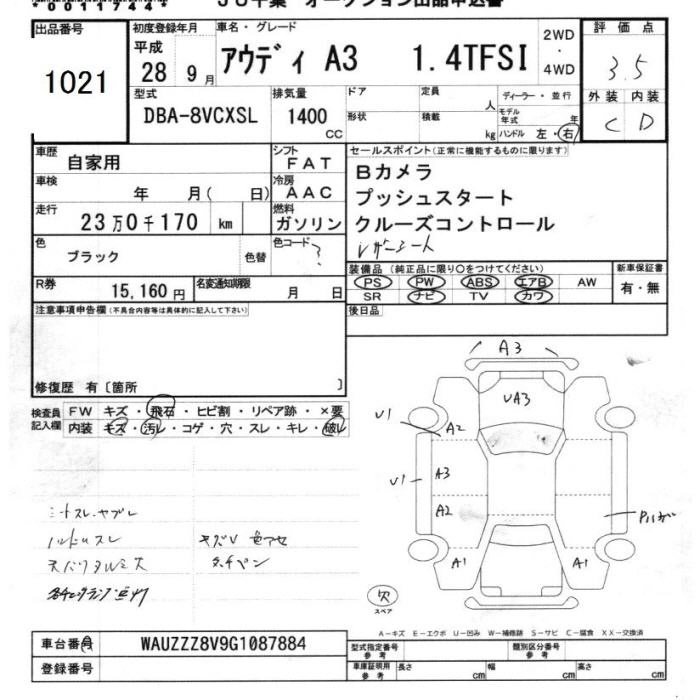 00117444
JU千葉 オークション出品申込書
出品番号
1021
初度登録年月
平成
28 9月
車名・グレード
アウディ A3 1.4TFSI
2WD
・
4WD
評価点
3.5
外装 内装
C D
型式
DBA-8VCXSL
排気量
1400
CC
ドア
定員
人
形状
積載
kg
ディーラー・並行
モデル年式 年
ハンドル 左・右
車歴
自家用
シフト
FAT
車検
年 月( 日)
冷房
AAC
走行
23万0千170 km
燃料
ガソリン
色
ブラック
色替
色コード
?
R券
15,160円
名変通知期限
月 日
セールスポイント(正常に機能するものに限ります)
Bカメラ
プッシュスタート
クルーズコントロール
レザーシート
装備品(純正品に限り○をつけてください)
PS PW ABS エアB AW
SR ナビ TV カワ
新車保証書
有・無
後日品
注意事項申告欄(不具合内容等は具体的に記入して下さい)
修復歴 有〔箇所 〕
検査員記入欄
FW キズ・飛石・ヒビ割・リペア跡・×要
内装 キズ・汚レ・コゲ・穴・スレ・キレ・破レ
シートスレ・ヤブレ
ハンドルスレ
A3
UA3
U1
A2
U1
A3
A2
A1
A1
欠
スペア
A-キズ E-エクボ U-凹み W-補修跡 S-サビ C-腐食 XX-交換済
車台番号
WAUZZZ8V9G1087884
登録番号
型式指定番号
参考
類別区分番号
参考
車庫証明用
参考
長さ cm
幅 cm
高さ cm